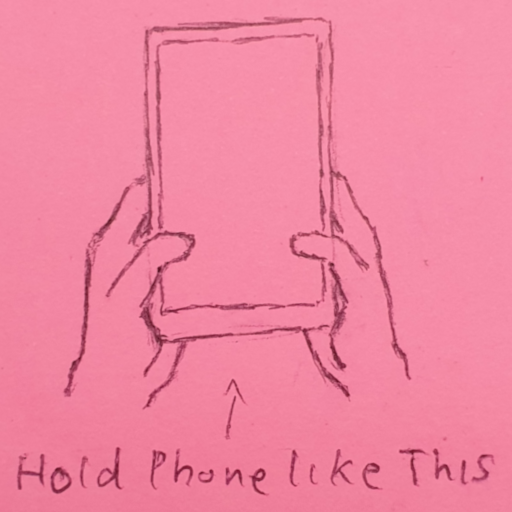 Hold Phone like This